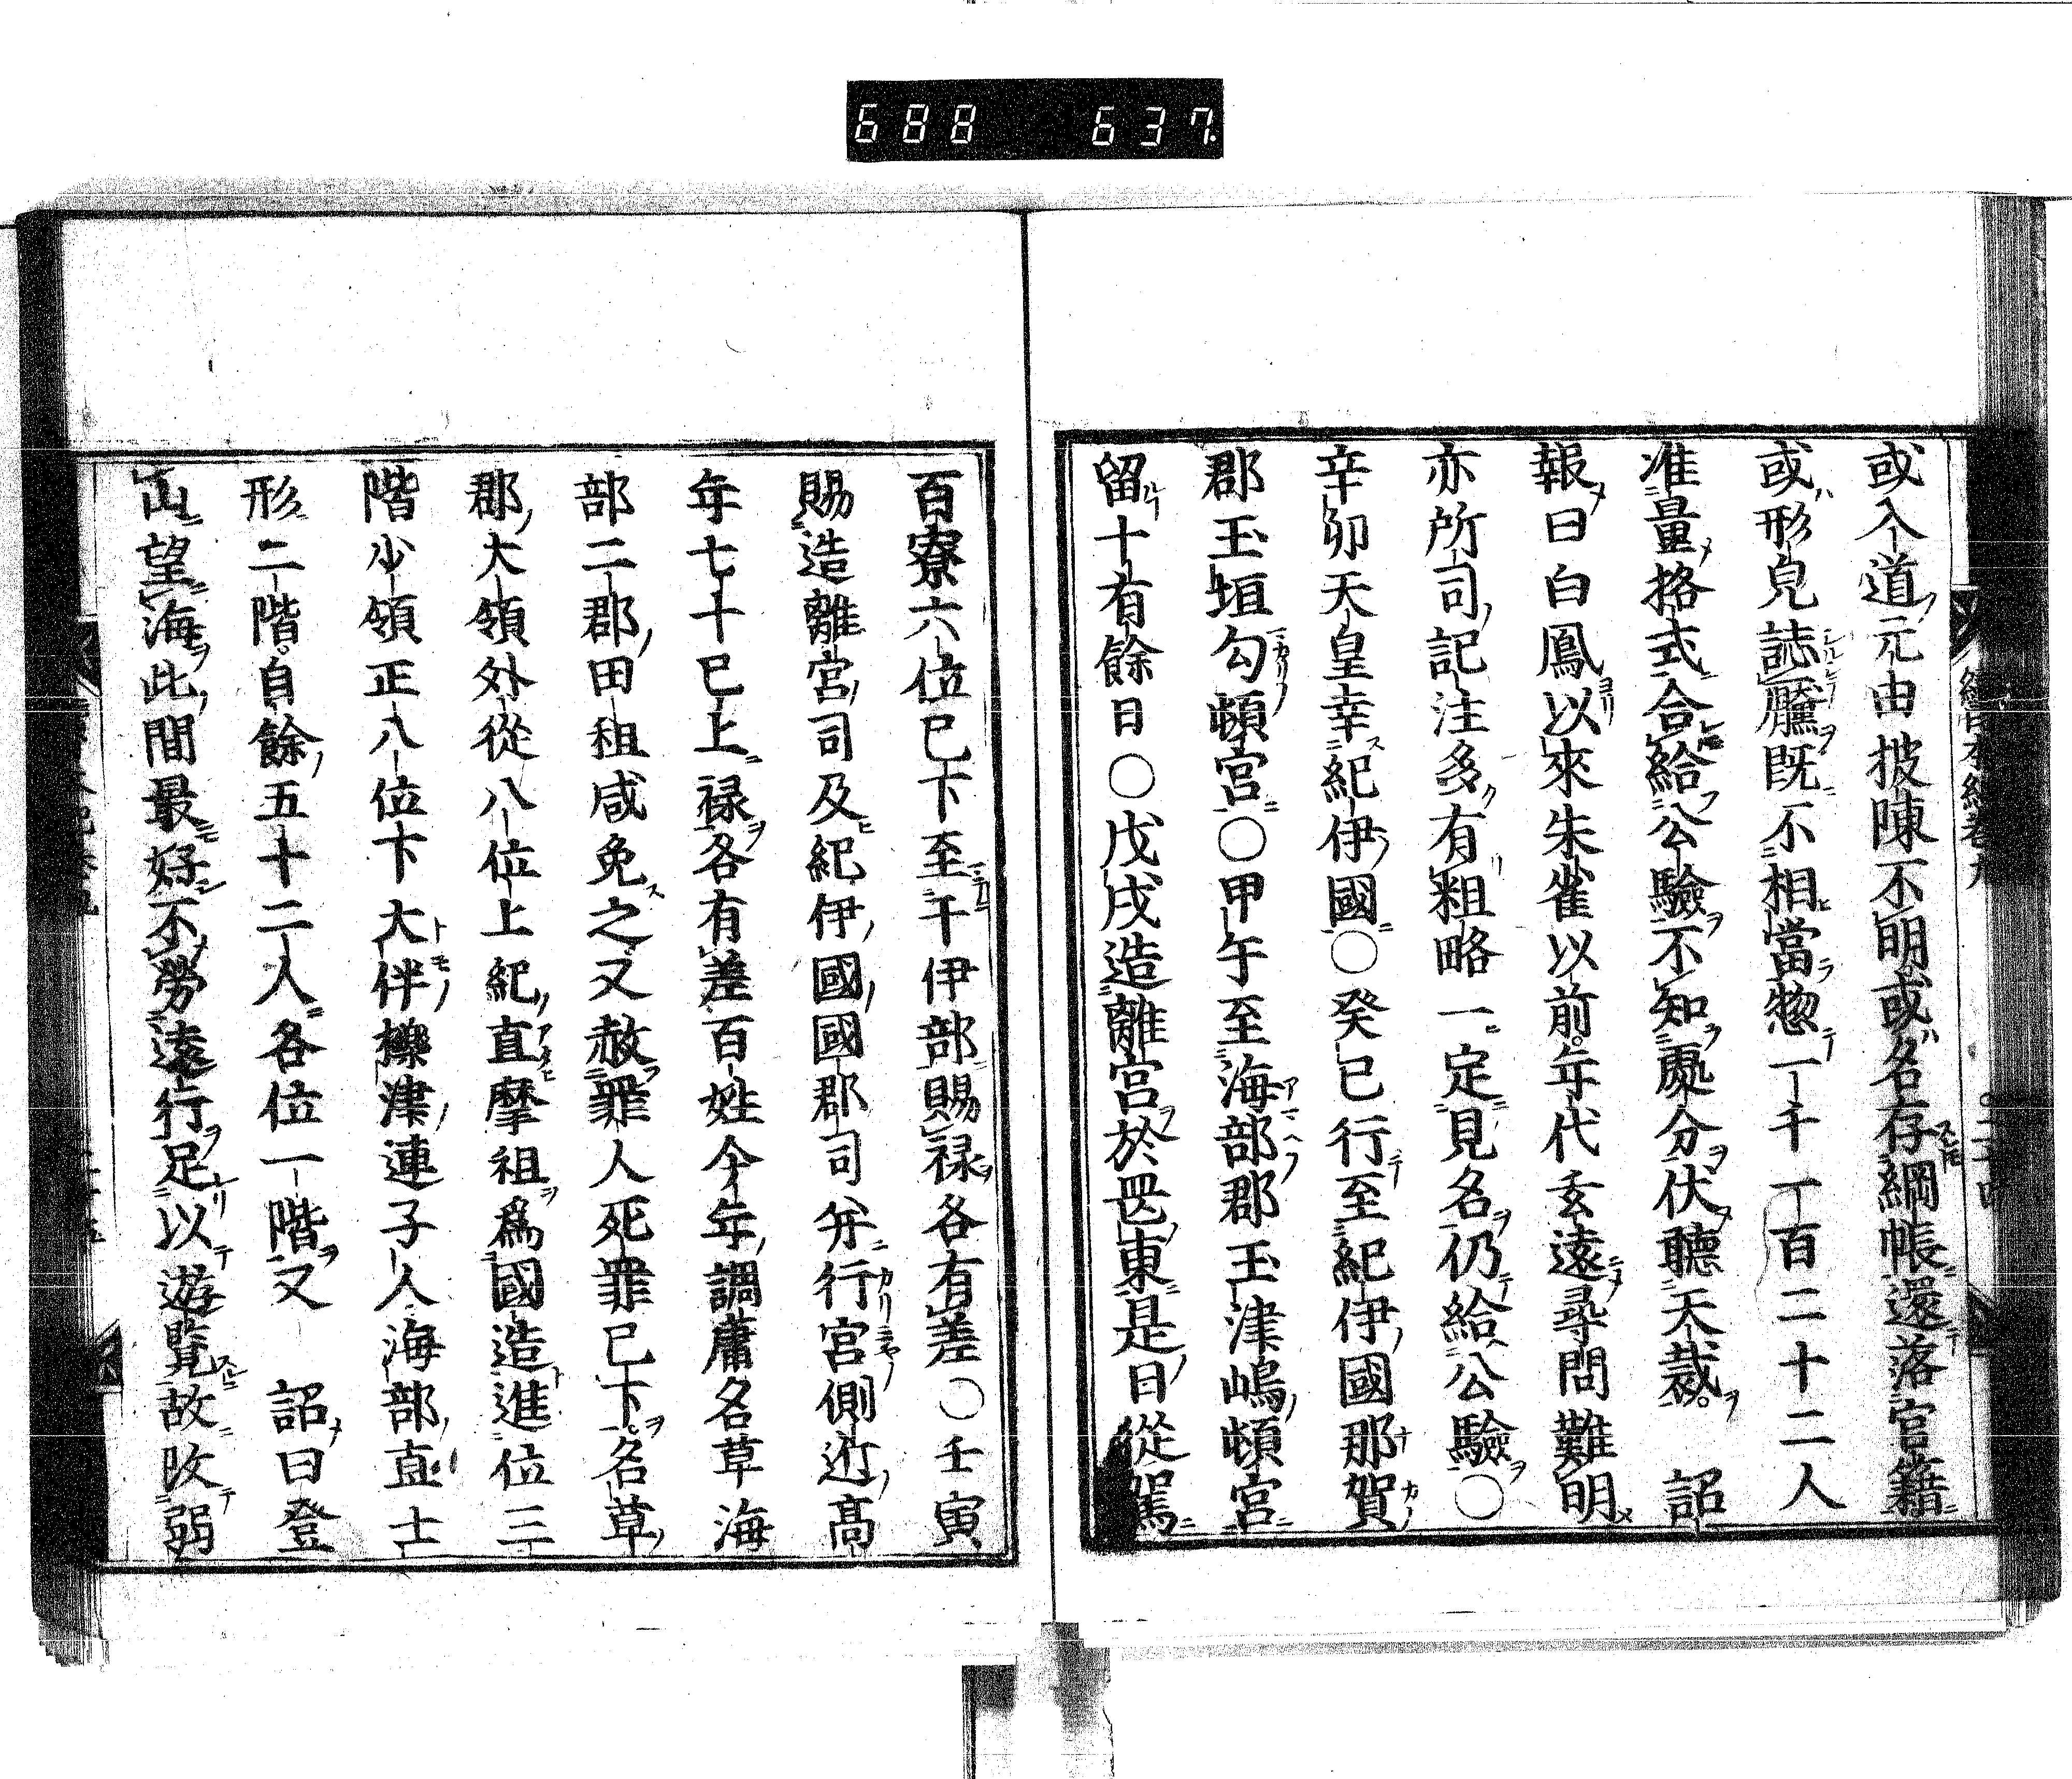 688 637
或入道元由披陳不明或名存綱帳還落官籍
或形皃誌黶既不相當惣一千一百二十二人
准量挌式合給公驗不知處分伏聽天裁。 詔
報曰白鳳以來朱雀以前。年代玄遠尋問難明
亦所司記注多有粗略一定見名仍給公驗〇
辛卯天皇幸紀伊國〇癸巳行至紀伊國那賀
郡玉垣勾頓宮〇甲午至海部郡玉津嶋頓宮
留十有餘日〇戊戌造離宮於罡東是日從駕
百寮六位已下至于伊部賜禄各有差〇壬寅
賜造離宮司及紀伊國國郡司并行宮側近高
年七十已上禄各有差百姓今年調庸名草海
部二郡田租咸免之又赦罪人死罪已下。名草
郡大領外從八位上紀直摩祖爲國造進位三
階少領正八位下大伴櫟津連子人海部直士
形二階。自餘五十二人各位一階又 詔曰登
山望海此間最好不勞遠行足以遊覽故改弱